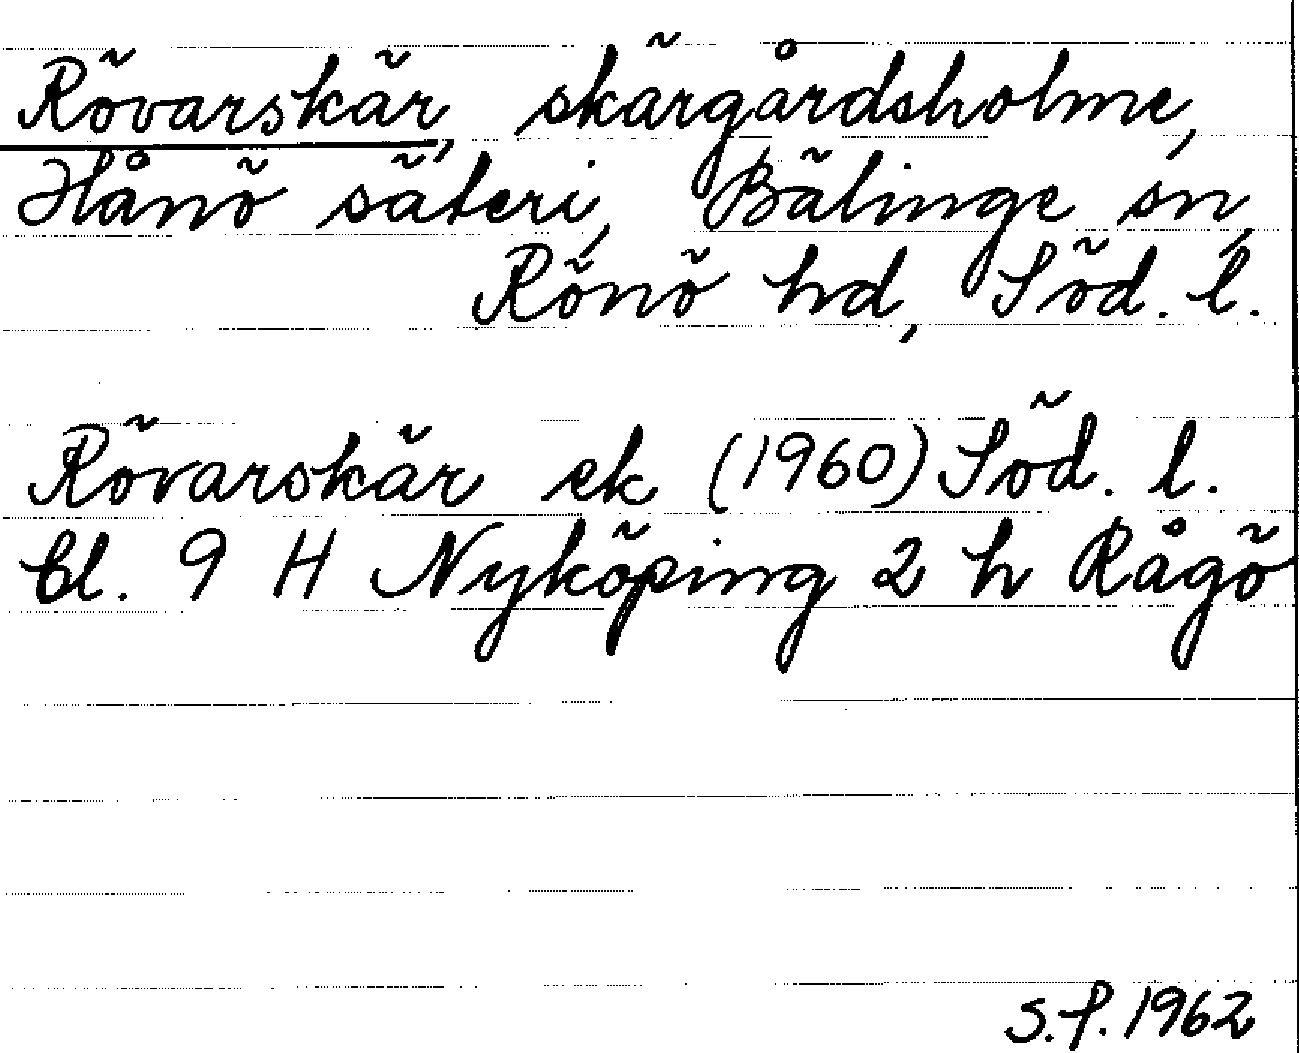 Rövarskär, skärgårdsholme,
Hånö säteri, Bälinge sn,
Rönö hd, Söd. l.
Rövarskär ek (1960) Söd. l.
bl. 9 H Nyköping 2 h Rågö
S.P. 1962